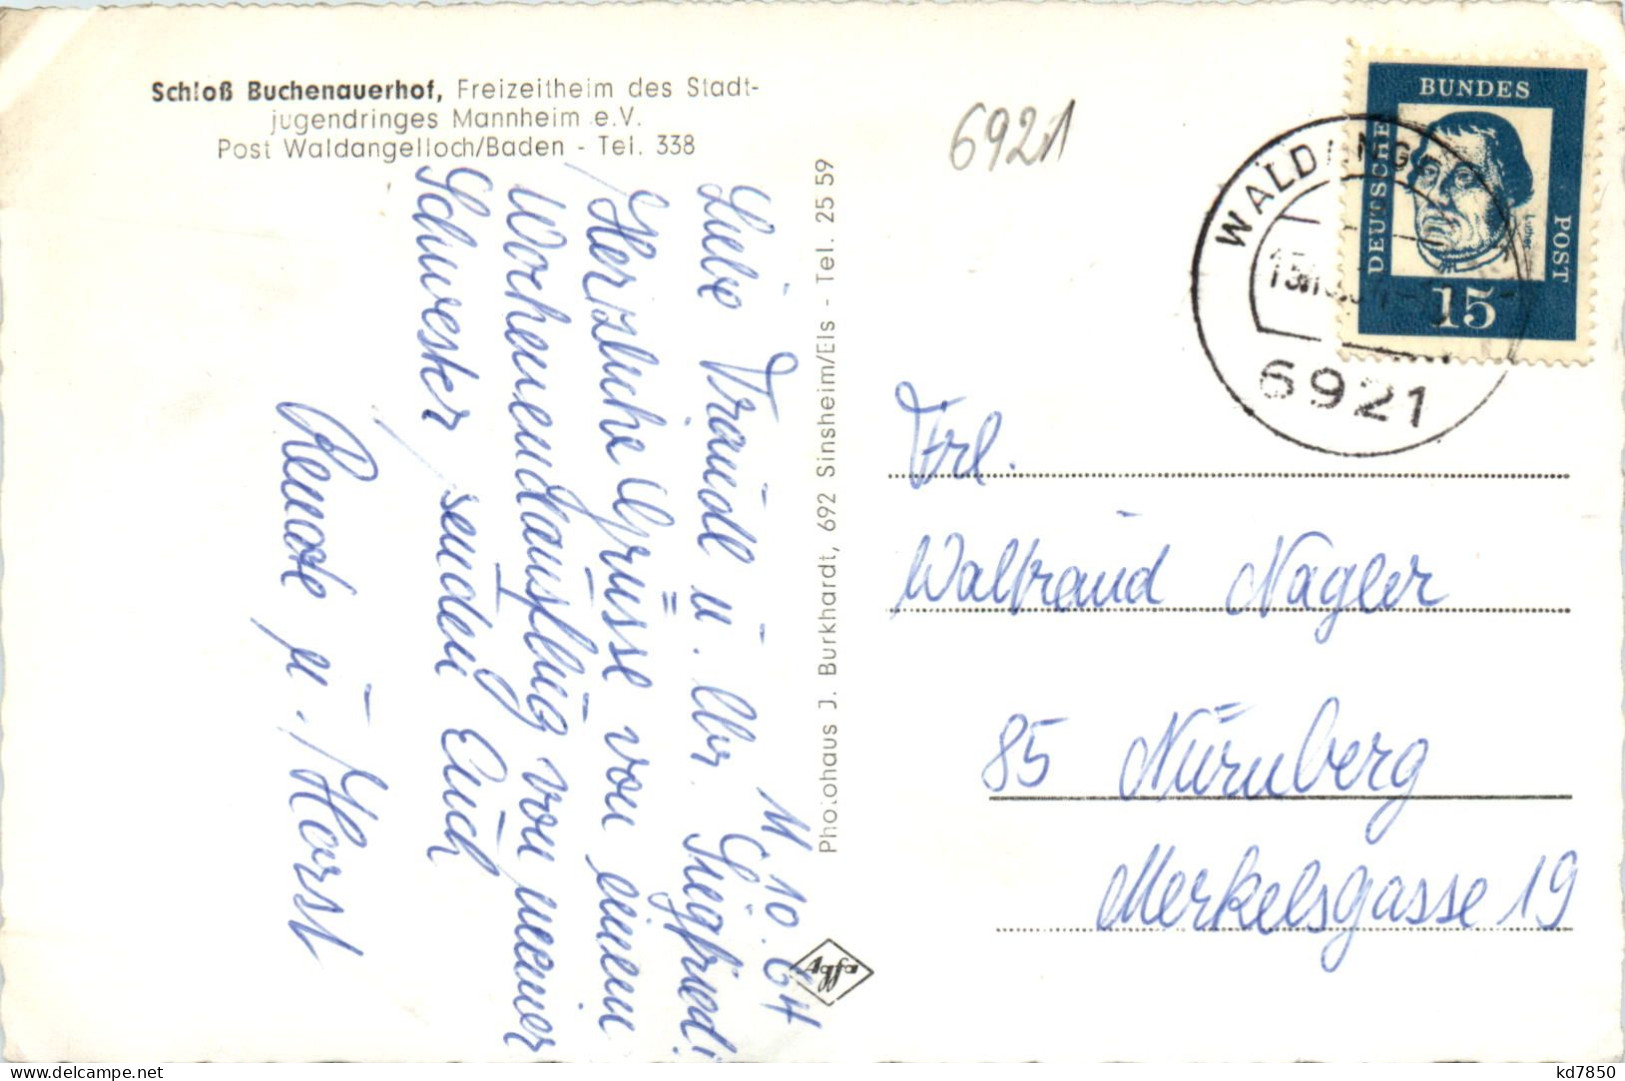 Schloß Buchenauerhof, Freizeitheim des Stadt-
jugendringes Mannheim e.V.
Post Waldangelloch/Baden - Tel. 338
11.10.64
Liebe Traudl u. lbr. Siegfried!
Herzliche Grüsse von einem
Wochenendausflug von meiner
Schwester, senden Euch
Renate u. Horst
Photohaus J. Burkhardt, 692 Sinsheim/Els - Tel. 25 59
Agfa
6921
BUNDES
DEUTSCHE
POST
15
6921
Frl.
Waltraud Nagler
85 Nürnberg
Merkelsgasse 19
delcampe.net
kd7850